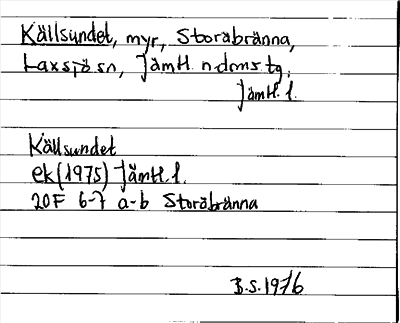 Källsundet, myr, Storåbränna,
Laxsjö sn, Jämtl. n. dms tg.
Jämtl. l.
Källsundet
ek (1975) Jämtl. l.
20F 6-7 a-b Storåbränna
B.S. 1976